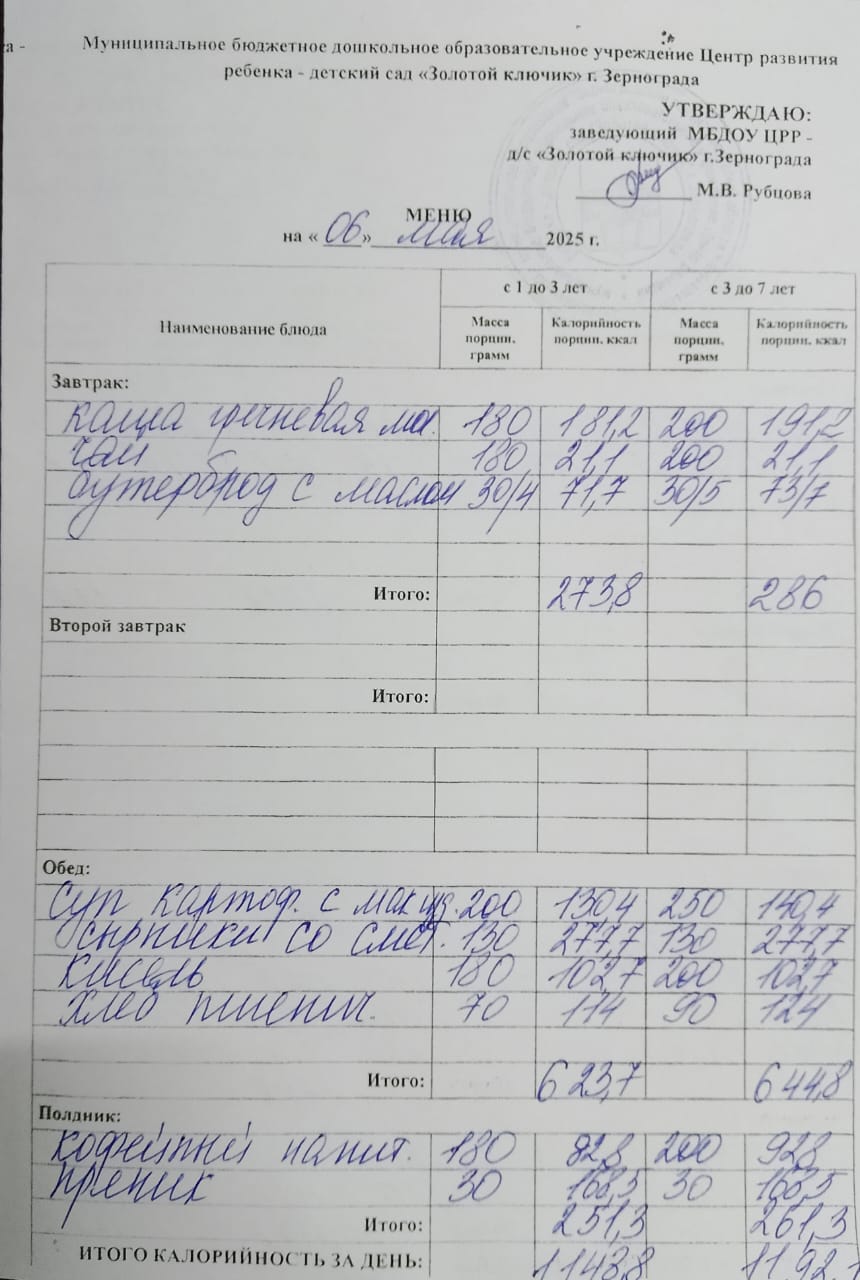 а -
Муниципальное бюджетное дошкольное образовательное учреждение Центр развития
ребенка - детский сад «Золотой ключик» г. Зернограда
УТВЕРЖДАЮ:
заведующий МБДОУ ЦРР -
д/с «Золотой ключик» г.Зернограда
М.В. Рубцова
МЕНЮ
на « 06 » мая 2025 г.
Наименование блюда с 1 до 3 лет с 3 до 7 лет
Масса порции, грамм Калорийность порции, ккал Масса порции, грамм Калорийность порции, ккал
Завтрак:
каша гречневая мол. 180 181,2 200 191,2
чай 180 21,1 200 21,1
бутерброд с маслом 30/4 71,7 30/5 73/7
Итого: 273,8 286
Второй завтрак
Итого:
Обед:
суп картоф. с мак изд. 200 130,4 250 140,4
сырники со смет. 130 277,7 130 277,7
кисель 180 102,7 200 102,7
хлеб пшенич. 70 114 90 124
Итого: 623,7 644,8
Полдник:
кофейный напит. 180 82,8 200 92,8
пряник 30 168,5 30 168,5
Итого: 251,3 261,3
ИТОГО КАЛОРИЙНОСТЬ ЗА ДЕНЬ: 1148,8 1192,1